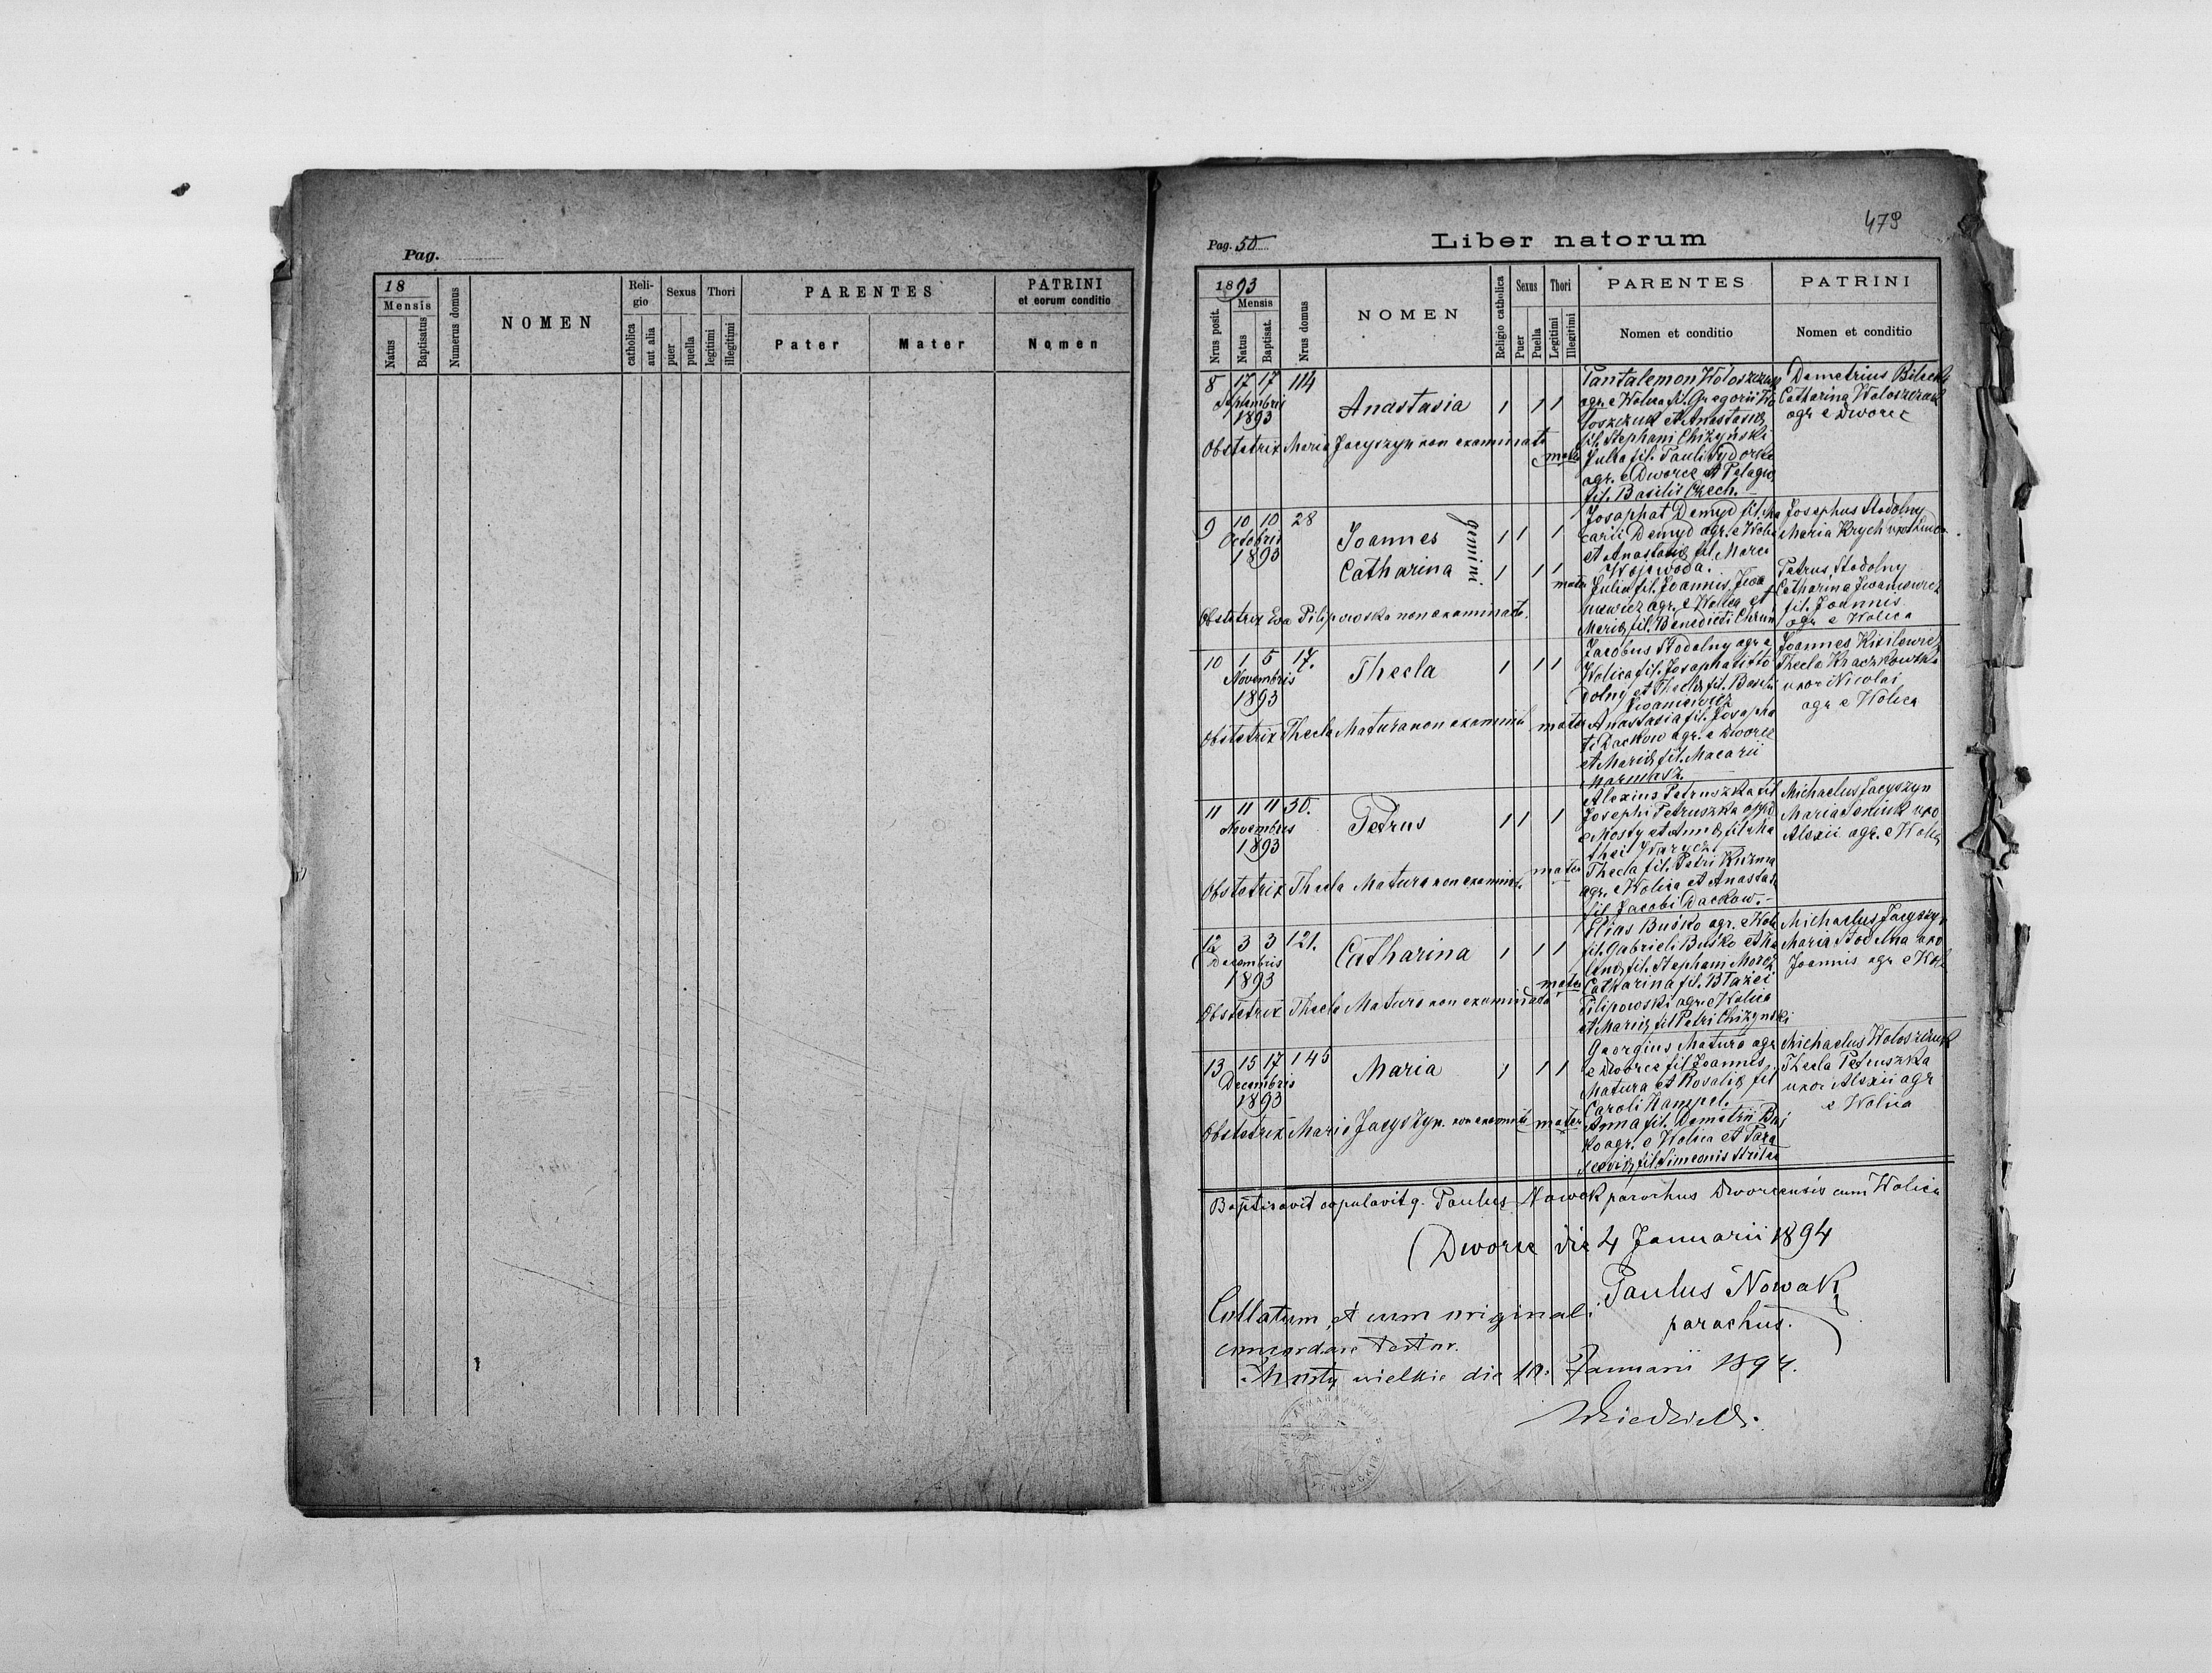 Pag.
18
Mensis
Natus
Baptisatus
Numerus domus
NOMEN
Religio
catholica
aut alia
Sexus
puer
puella
Thori
legitimi
illegitimi
PARENTES
Pater
Mater
PATRINI
et eorum conditio
Nomen
479
Pag. 50
Liber natorum
1893
Nrus posit.
Mensis
Natus
Baptisat.
Nrus domus
NOMEN
Religio catholica
Sexus
Puer
Puella
Thori
Legitimi
Illegitimi
PARENTES
Nomen et conditio
PATRINI
Nomen et conditio
8 17 17 114
Septembris
1893
Anastasia 1 1 1
Obstetrix Maria Jacyszyn non examinata
mater
Pantalemon Wołoszczuk
agr. e Wolica fil. Gregorii Wo
łoszczuk et Anastasiæ
fil. Stephani Chiżyński
Julia fil. Pauli Sydorko
agr. e Dworce et Pelagiæ
fil. Basilii Czech.
Demetrius
Catharina Wołoszczuk
agr e Dworce
9 10 10 28
Octobris
1893
Joannes 1 1 1
gemini
Catharina 1 1 1
mater
Obstetrix Eva Pilipowska non examinata.
Josaphat Demyd fil.
Demyd agr. e Wolica
et Anastasiæ fil. Marci
Wojewoda.
Julia fil. Joannis Iwa
niewicz agr. e Wolica et
Mariæ fil. Benedicti
Josephus Stodolny
Maria Krych
Petrus Stodolny
Catharina Iwaniewicz
fil. Joannis
agr e Wolica
10 1 5 17.
Novembris
1893
Thecla 1 1 1
Obstetrix Thecla Matura non examinata
mater
Jacobus Stodolny agr e
Wolica fil. Josaphati Sto
dolny et Theclæ fil. Basilii
Iwaniewicz
Anastasia fil. Josapha
ti Dackow agr. e Dworce
et Mariæ fil. Macarii
Joannes Kisilewicz
Thecla Kraczkowska
uxor Nicolai
agr e Wolica
11 11 11 30.
Novembris
1893
Petrus 1 1 1
Obstetrix Thecla Matura non examinata
mater
Alexius Petruszka fil
Josephi Petruszka
e Mosty et Annæ fil. Ma
thei
Thecla fil. Petri Kuzma
agr. e Wolica et Anastas.
fil. Jacobi Dackow.
Michaelus Jacyszyn
Maria Seniuk uxo
Alexii agr. e Wolica
12 3 3 121.
Decembris
1893
Catharina 1 1 1
Obstetrix Thecla Matura non examinata
mater
Elias Buśko agr. e Wolica
fil. Gabrieli Buśko et
fil. Stephani
Catharina fil. Błażei
Pilipowski agr. e Wolica
et Mariæ fil Petri Chiżynski
Michaelus Jacyszyn
Maria Stodolna uxo
Joannis agr e Wol
13 15 17 145
Decembris
1893
Maria 1 1 1
Obstetrix Maria Jacyszyn. non examinata
mater
Georgius Matura agr
e Dworce fil Joannis
Matura et Rosaliæ fil
Caroli Hampel.
Anna fil. Demetrii Buś
ko agr. e Wolica et Para
scevi[æ] fil. Simeonis
Michaelus Wołoszczuk
Thecla Petruszka
uxor Alexii agr
e Wolica
Baptisavit copulavitq. Paulus Nowak parochus Dworcensis cum Wolica
Dworce die 4 Januarii 1894
Paulus Nowak
parochus.
Collatum et cum originali
concordare testor.
Mosty wielkie die 10. Januarii 1894.